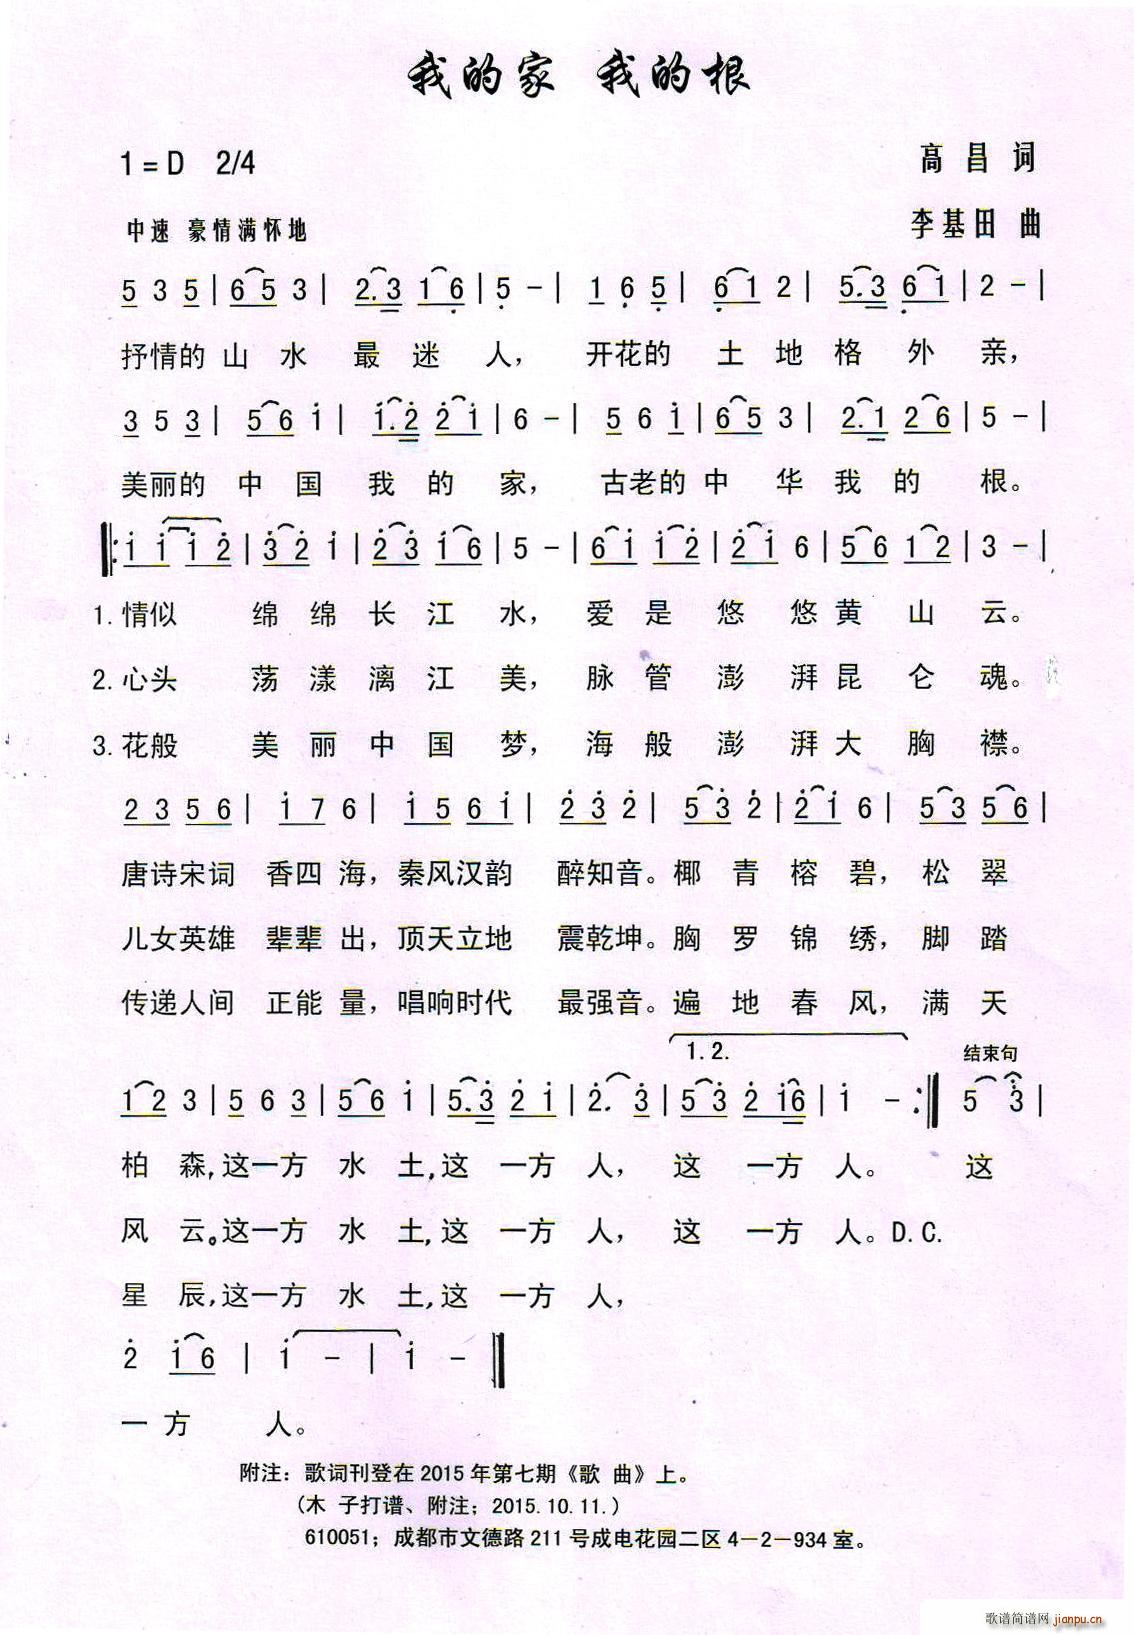 我的家 我的根
1=D 2/4
高昌 词
中速 豪情满怀地
李基田 曲
5 3 5 | 6 5 3 | 2. 3 1 6 | 5 - | 1 6 5 | 6 1 2 | 5. 3 6 1 | 2 - |
抒情的 山 水 最 迷 人， 开花的 土 地 格 外 亲，
3 5 3 | 5 6 i | i. 2 2 i | 6 - | 5 6 i | 6 5 3 | 2. 1 2 6 | 5 - |
美丽的 中 国 我 的 家， 古老的 中 华 我 的 根。
‖: i i i 2 | 3 2 i | 2 3 i 6 | 5 - | 6 i i 2 | 2 i 6 | 5 6 1 2 | 3 - |
1. 情似 绵 绵 长 江 水， 爱 是 悠 悠 黄 山 云。
2. 心头 荡 漾 漓 江 美， 脉 管 澎 湃 昆 仑 魂。
3. 花般 美 丽 中 国 梦， 海 般 澎 湃 大 胸 襟。
2 3 5 6 | i 7 6 | i 5 6 i | 2 3 2 | 5 3 2 | 2 i 6 | 5 3 5 6 |
唐诗宋词 香四 海，秦风汉韵 醉知音。椰 青 榕 碧，松 翠
儿女英雄 辈辈 出，顶天立地 震乾坤。胸 罗 锦 绣，脚 踏
传递人间 正能 量，唱响时代 最强音。遍 地 春 风，满 天
1.2. 结束句
1 2 3 | 5 6 3 | 5 6 i | 5. 3 2 i | 2. 3 | 5 3 2 i6 | i - :‖ 5 3 |
柏 森,这一方 水 土,这 一方 人， 这 一方 人。 这
风 云。这一方 水 土,这 一方 人， 这 一方 人。D.C.
星 辰,这一方 水 土,这 一方 人，
2 i 6 | i - | i - ‖
一 方 人。
附注：歌词刊登在2015年第七期《歌 曲》上。
(木 子打谱、附注；2015.10.11.)
610051；成都市文德路211号成电花园二区4-2-934室。
歌谱简谱网 jianpu.cn